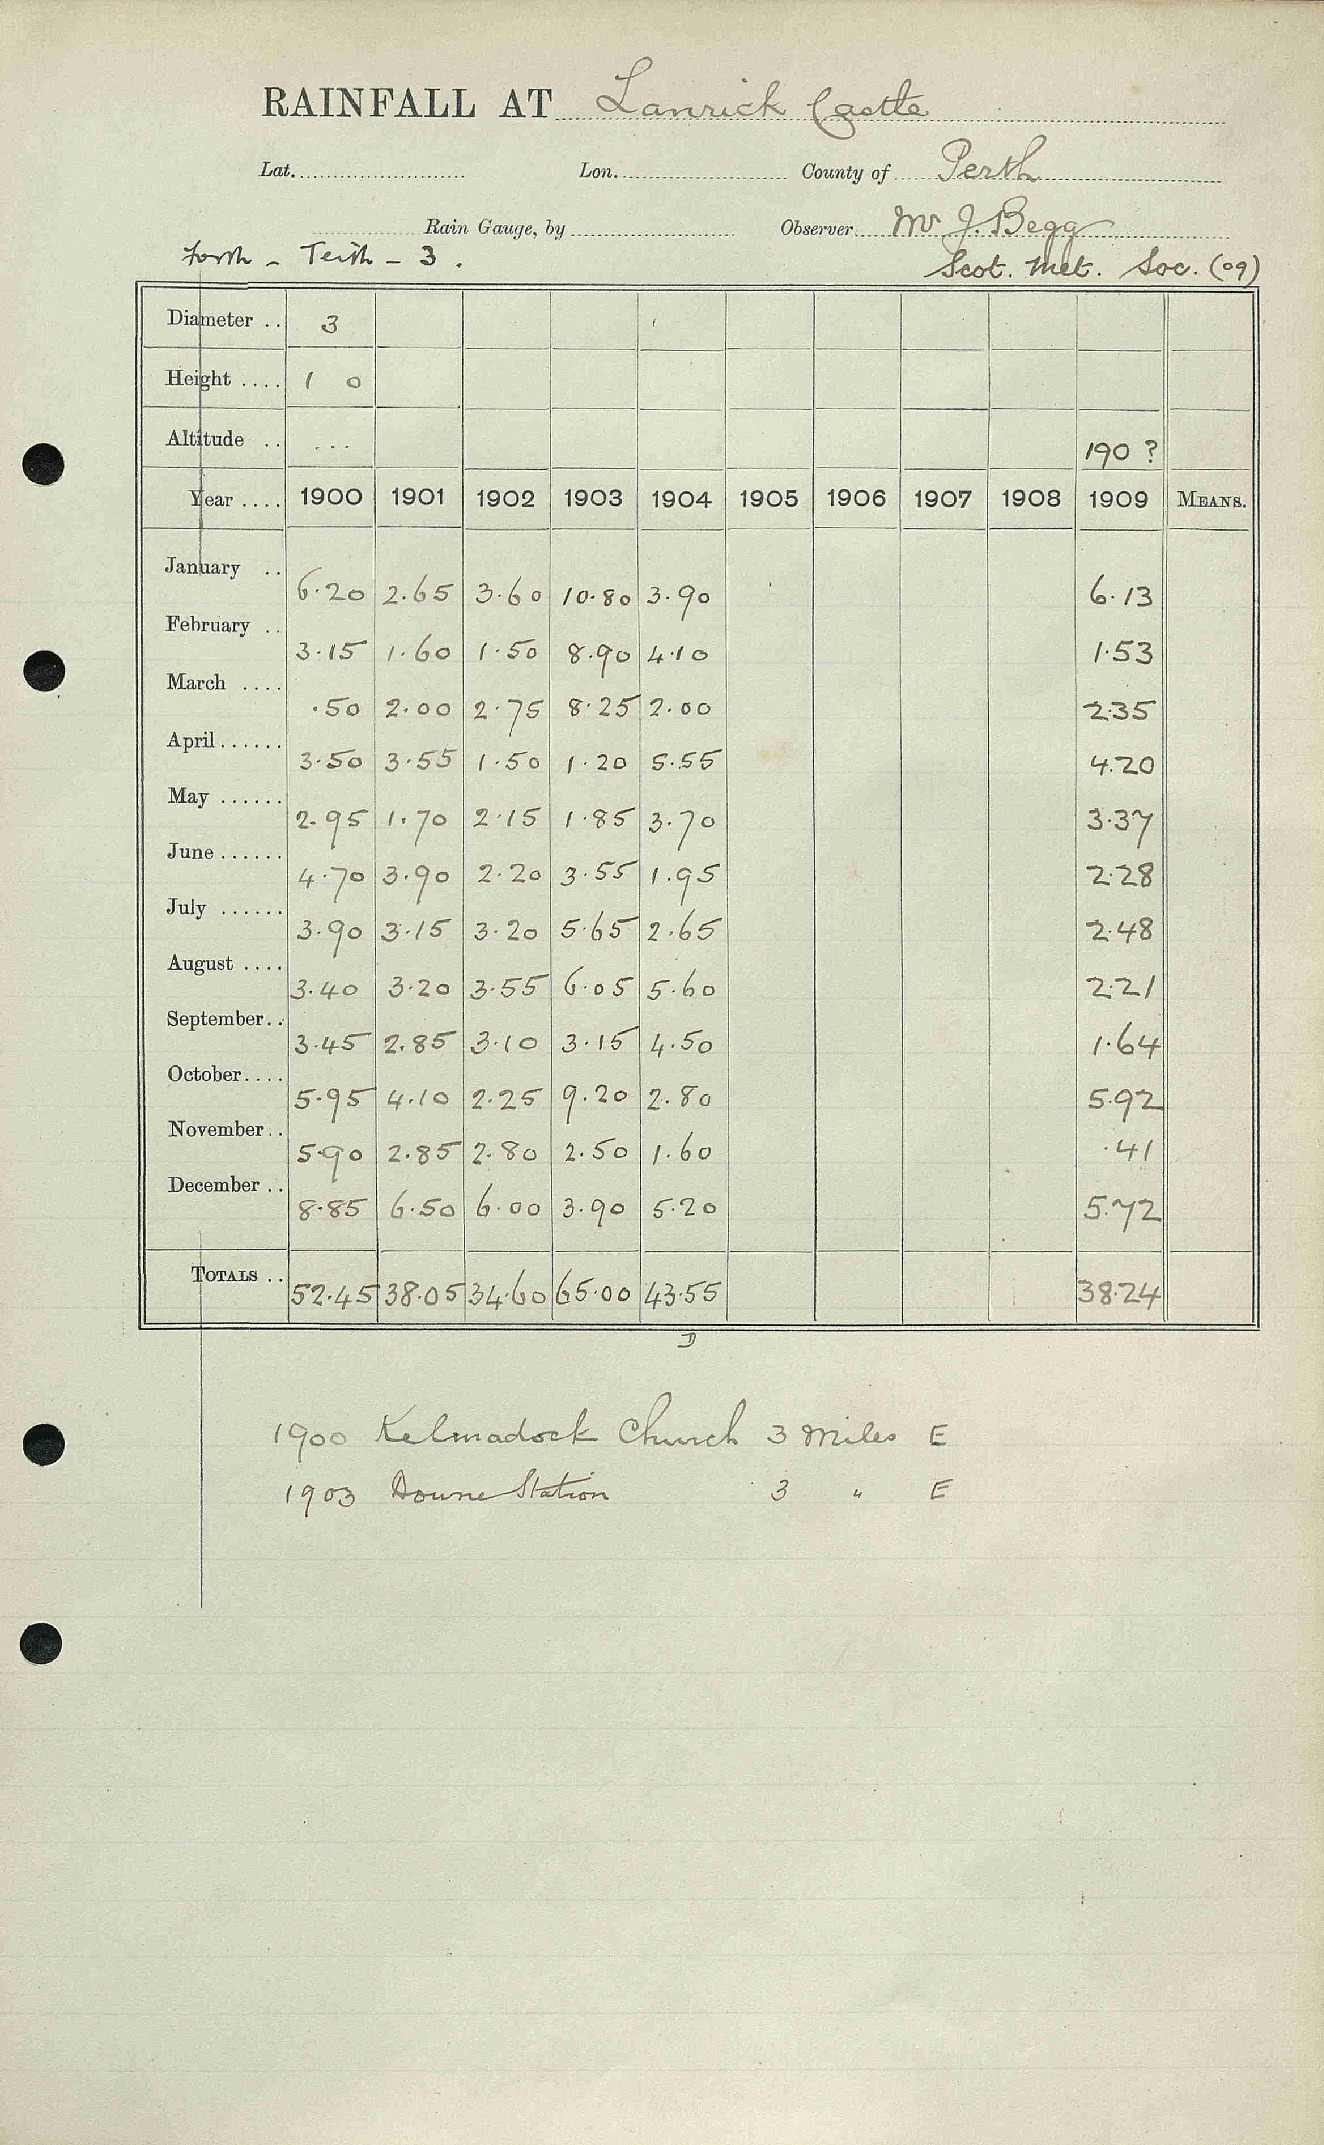 RAINFALL AT Lanrick Castle
Lat. Lon. County of Perth
Rain Gauge, by Observer Mr J. Begg
Forth - Teith - 3. Scot. Met. Soc. (09)
Diameter .. 3
Height .... 1 0
Altitude .. ... 190 ?
Year .... 1900 1901 1902 1903 1904 1905 1906 1907 1908 1909 MEANS.
January .. 6.20 2.65 3.60 10.80 3.90 6.13
February .. 3.15 1.60 1.50 8.90 4.10 1.53
March .... .50 2.00 2.75 8.25 2.00 2.35
April...... 3.50 3.55 1.50 1.20 5.55 4.20
May ...... 2.95 1.70 2.15 1.85 3.70 3.37
June...... 4.70 3.90 2.20 3.55 1.95 2.28
July ...... 3.90 3.15 3.20 5.65 2.65 2.48
August .... 3.40 3.20 3.55 6.05 5.60 2.21
September.. 3.45 2.85 3.10 3.15 4.50 1.64
October.... 5.95 4.10 2.25 9.20 2.80 5.92
November.. 5.90 2.85 2.80 2.50 1.60 .41
December .. 8.85 6.50 6.00 3.90 5.20 5.72
TOTALS .. 52.45 38.05 34.60 65.00 43.55 38.24
D
1900 Kelmadock Church 3 Miles E
1903 Doune Station 3 " E